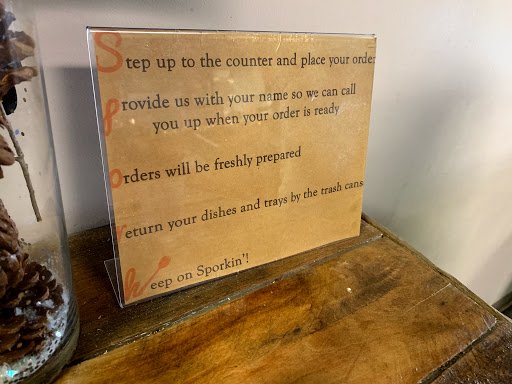 Step up to the counter and place your order
provide us with your name so we can call
you up when your order is ready
orders will be freshly prepared
return your dishes and trays by the trash cans
keep on Sporkin'!